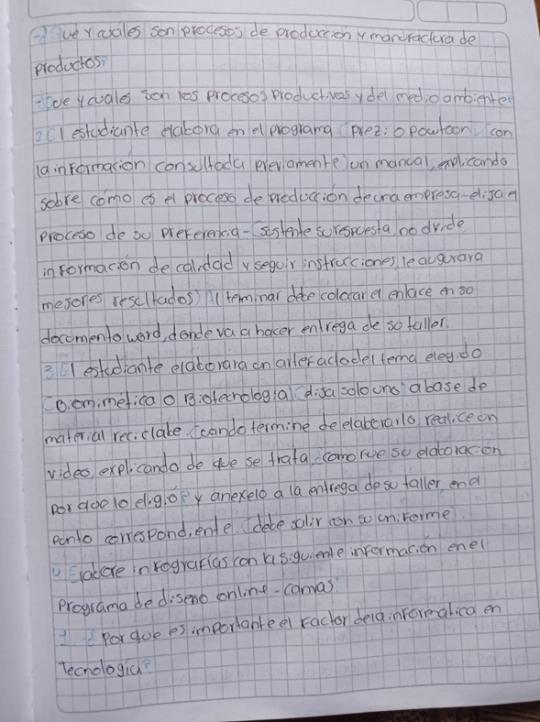 -¿Que y cuales son procesos de produccion y manufactura de
productos?
-¿Que y cuales son los procesos productivos y del medio ambiente?
2 El estudiante elabora en el programa (prezi o powtoon) con
la informacion consultada previamente un manual, explicando
sobre como es el proceso de produccion de una empresa-elija el
proceso de su preferencia-sustente su respuesta, no olvide
informacion de calidad y seguir instrucciones, le augurara
mejores resultados) Al terminar debe colocar el enlace en so
documento word, donde va a hacer entrega de so taller.
3 El estudiante elaborara un artefacto del tema elegido
(Biomimetica o Biotecnologia) elija solo uno a base de
material reciclable (cando termine de elaborarlo, realice un
video, explicando de que se trata, como fue su elaboracion
por que lo eligio? y anexelo a la entrega de su taller, en el
punto correspondiente (debe salir con su uniforme
4 Elabore infografias con la siguiente informacion en el
programa de diseño online-canvas
1 -¿Por que es importante el factor de la informatica en
Tecnologia?